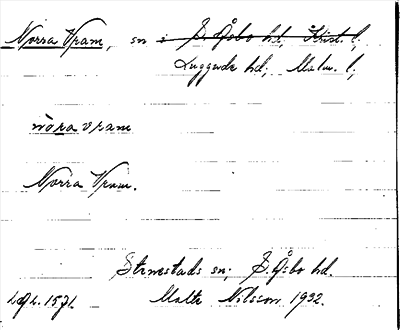 Norra Vram, sn i S. Åsbo hd, Krist. l;
Luggude hd; Malm. l;
nora vram
Norra Vram.
Strövestads sn; S. Åsbo hd.
Malte Nilsson 1932.